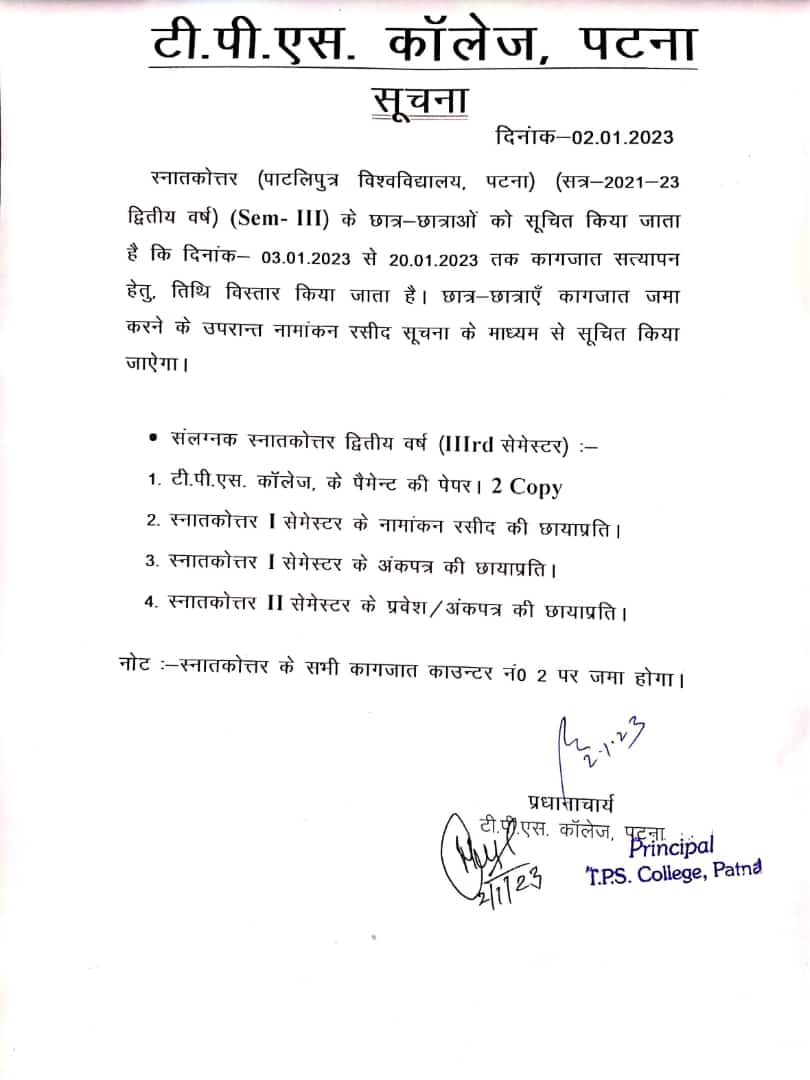 टी.पी.एस. कॉलेज, पटना
सूचना
दिनांक–02.01.2023
स्नातकोत्तर (पाटलिपुत्र विश्वविद्यालय, पटना) (सत्र–2021–23
द्वितीय वर्ष) (Sem- III) के छात्र–छात्राओं को सूचित किया जाता
है कि दिनांक– 03.01.2023 से 20.01.2023 तक कागजात सत्यापन
हेतु, तिथि विस्तार किया जाता है। छात्र–छात्राएँ कागजात जमा
करने के उपरान्त नामांकन रसीद सूचना के माध्यम से सूचित किया
जाऐगा।
• संलग्नक स्नातकोत्तर द्वितीय वर्ष (IIIrd सेमेस्टर) :–
1. टी.पी.एस. कॉलेज, के पैमेन्ट की पेपर। 2 Copy
2. स्नातकोत्तर I सेमेस्टर के नामांकन रसीद की छायाप्रति।
3. स्नातकोत्तर I सेमेस्टर के अंकपत्र की छायाप्रति।
4. स्नातकोत्तर II सेमेस्टर के प्रवेश/अंकपत्र की छायाप्रति।
नोट :–स्नातकोत्तर के सभी कागजात काउन्टर नं0 2 पर जमा होगा।
2.1.23
प्रधानाचार्य
टी.पी.एस. कॉलेज, पटना
Principal
T.P.S. College, Patna
2/1/23